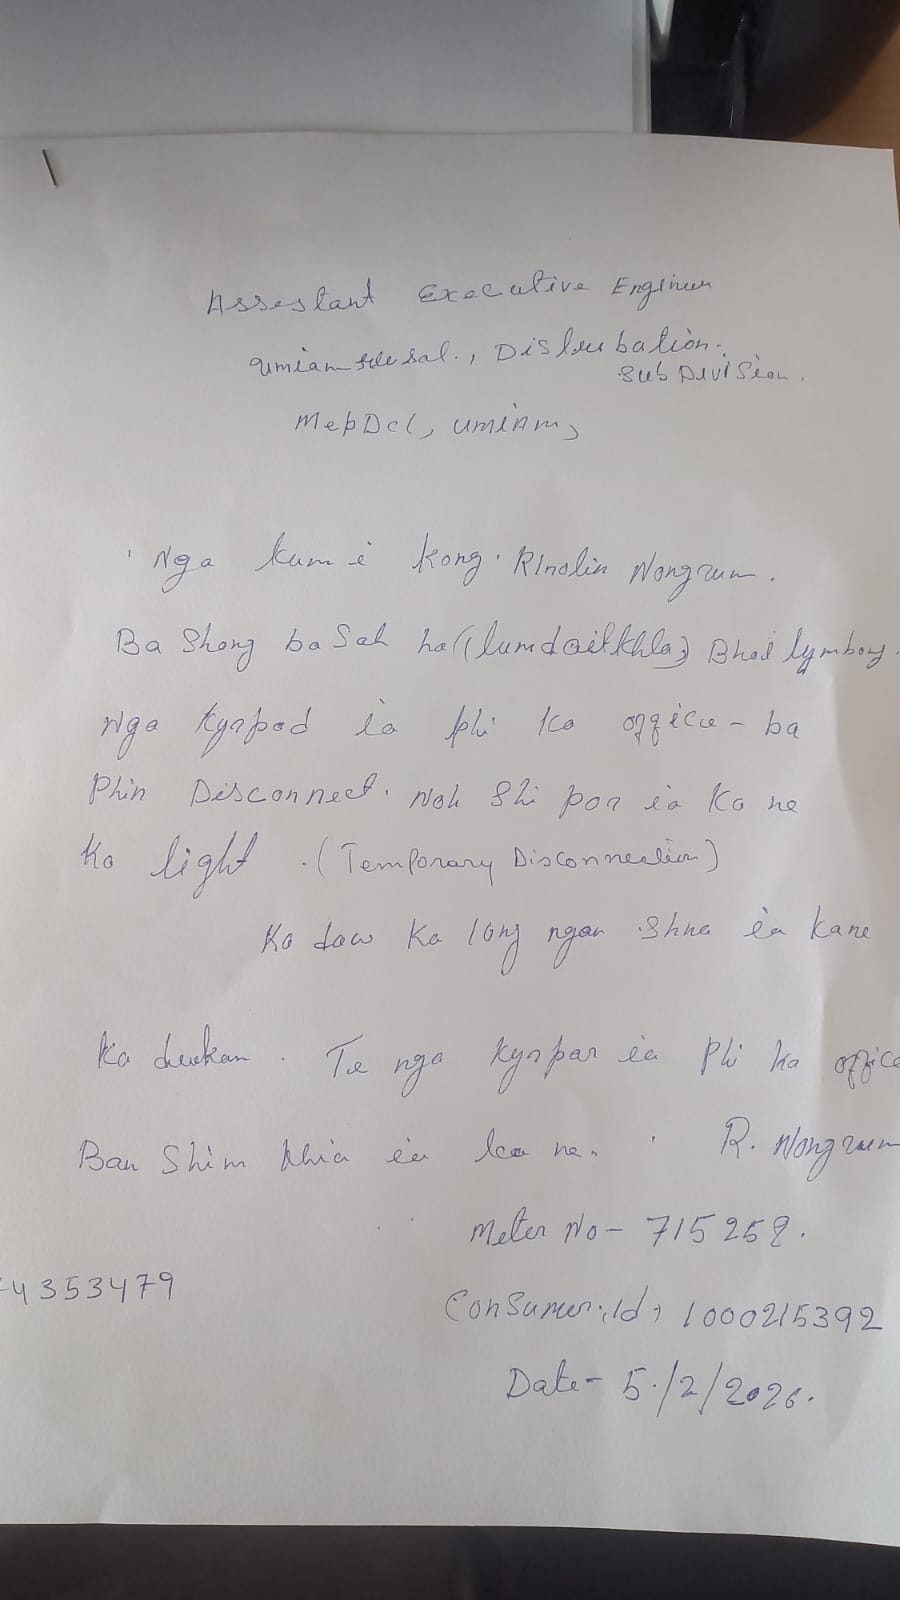 Assestant Executive Engineer
umiam , Distrubation.
Sub Division.
MepDcl, umiam,
Nga kum i kong. Rinolin Nongrum.
Ba Shong ba Sah ha (lumdaitkhla) Bhoi lymbong.
Nga Kyrpad ia phi ka office - ba
Phin Disconnect. Noh Shi por ia Ka ne
Ka light . (Temporary Disconnection)
Ka daw Ka long ngan Shna ia kane
Ka dukan . Te nga Kyrpar ia Phi ka office
Ban Shim khia ia ka ne. R. Nongrum
Meter No - 715252.
4353479
Consumer. Id, 1000215392
Date - 5./2/2026.